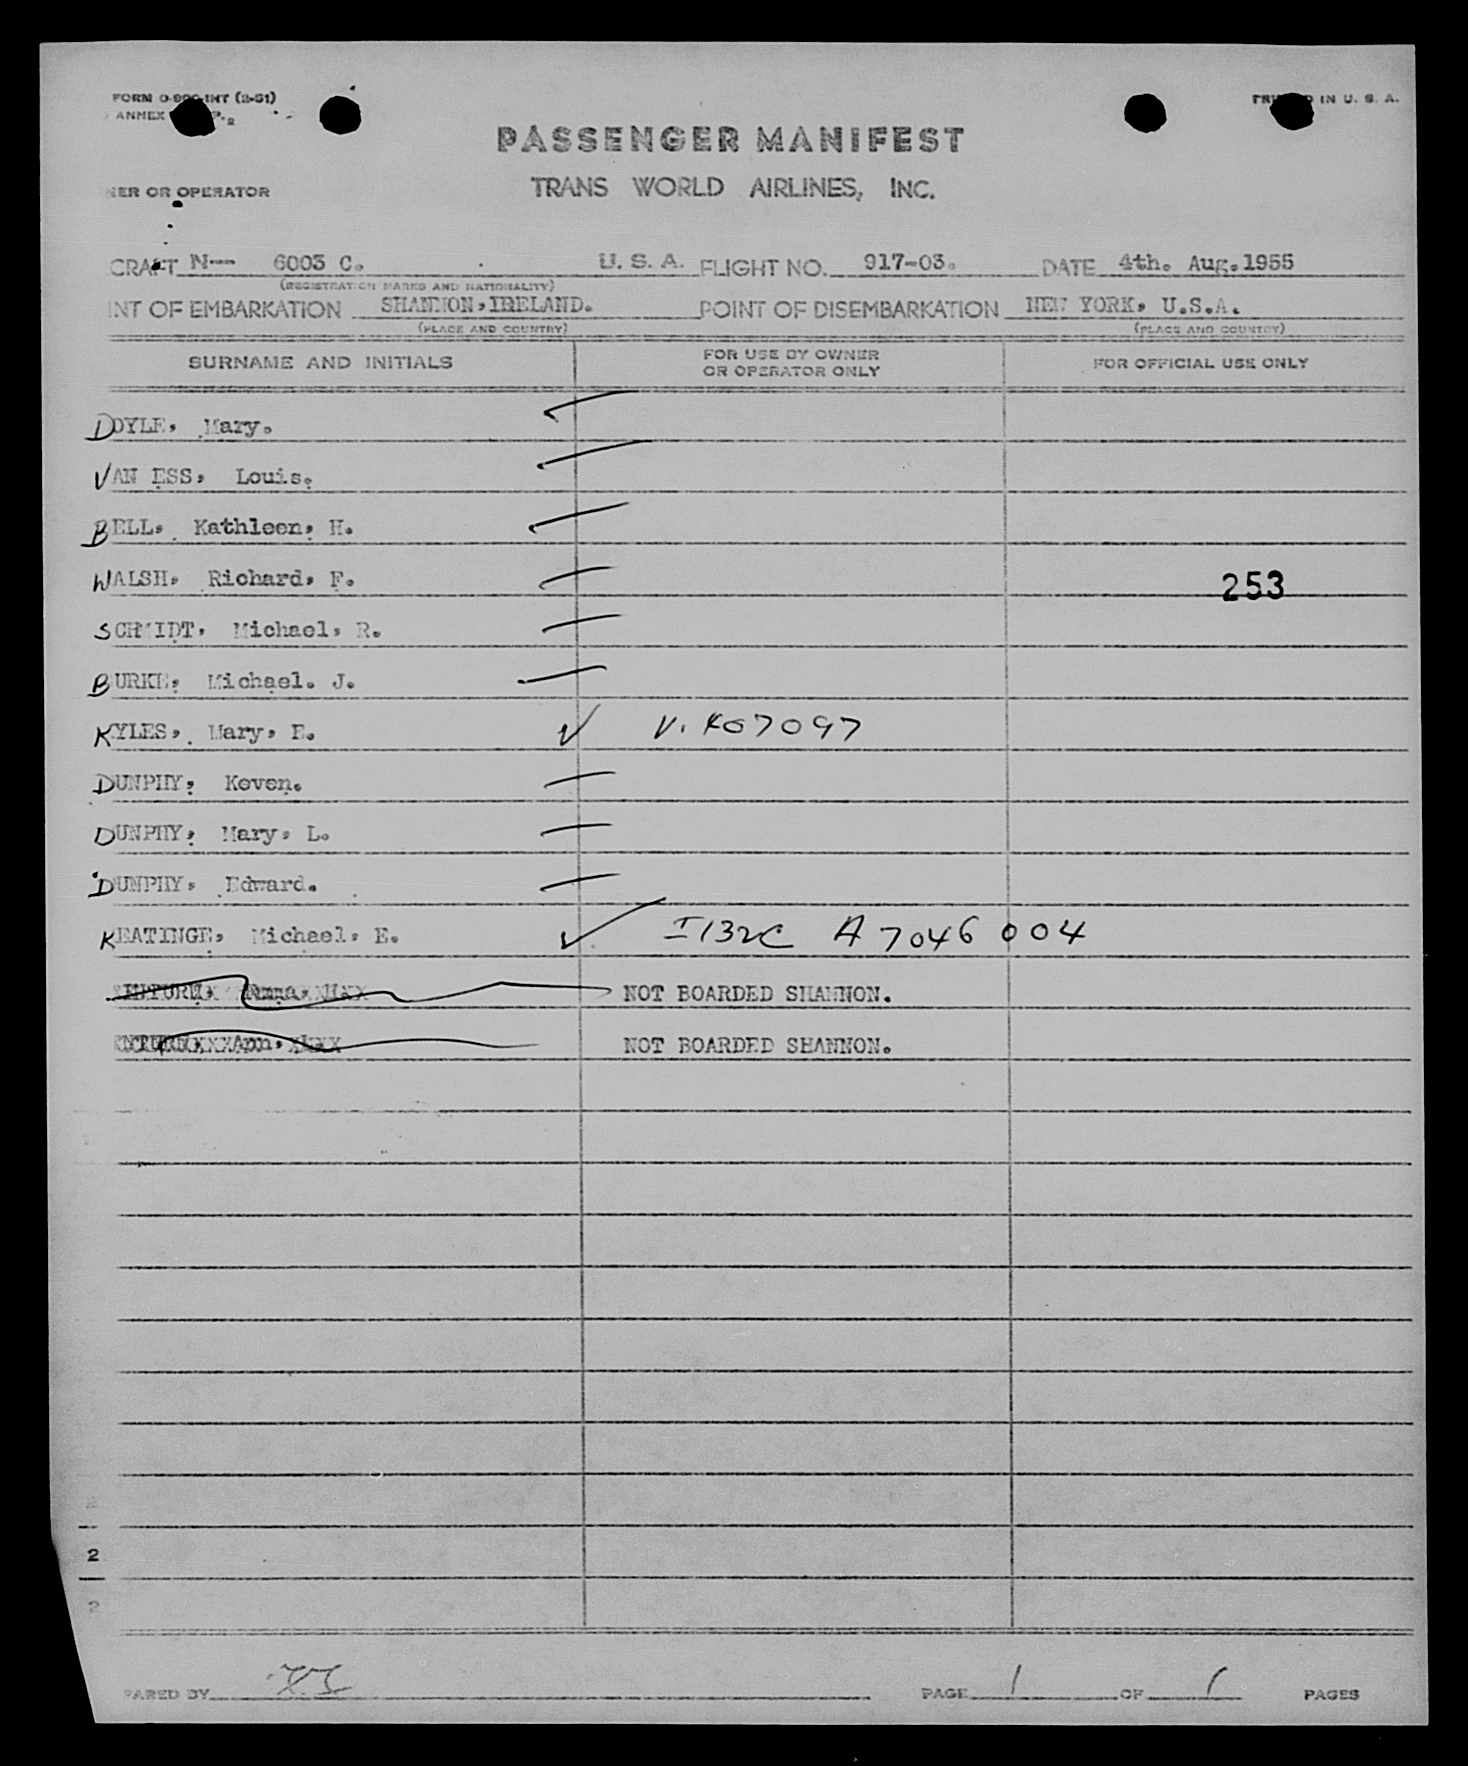 FORM O-900-INT (2-51) PRINTED IN U. S. A.
ANNEX
PASSENGER MANIFEST
NER OR OPERATOR TRANS WORLD AIRLINES, INC.
CRAFT N-- 6003 C. U. S. A. FLIGHT NO. 917-03. DATE 4th. Aug. 1955
(REGISTRATION MARKS AND NATIONALITY)
INT OF EMBARKATION SHANNON, IRELAND. POINT OF DISEMBARKATION NEW YORK, U.S.A.
(PLACE AND COUNTRY) (PLACE AND COUNTRY)
SURNAME AND INITIALS FOR USE BY OWNER OR OPERATOR ONLY FOR OFFICIAL USE ONLY
DOYLE, Mary.
VAN ESS, Louis.
BELL, Kathleen, H.
WALSH, Richard, F. 253
SCHMIDT, Michael, R.
BURKE, Michael. J.
KYLES, Mary, E. V. 407097
DUNPHY, Keven.
DUNPHY, Mary, L.
DUNPHY, Edward.
KEATINGE, Michael, E. I132C A7046 004
NOT BOARDED SHANNON.
Ann, NOT BOARDED SHANNON.
2
2
PARED BY PAGE 1 OF 1 PAGES